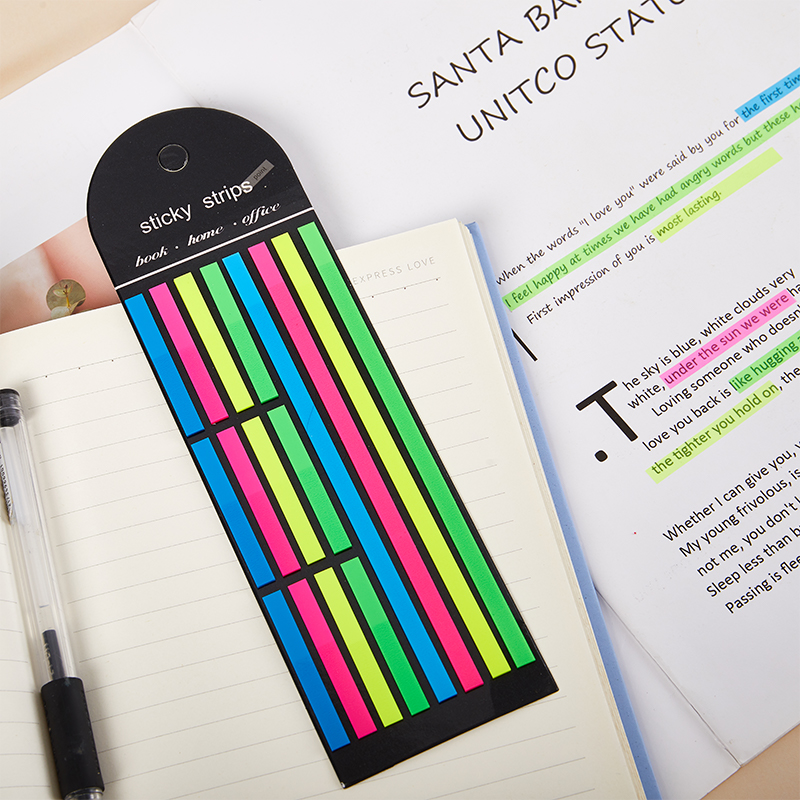 SANTA
UNITCO
when the words "I love you" were said by you for the first
I feel happy at times we have had angry words but these
First impression of you is most lasting.
sticky strips
point
book · home · office
EXPRESS LOVE
The sky is blue, white clouds very
white, under the sun we were
Loving someone who doesn
love you back is like hugging
the tighter you hold on, the
Whether I can give you,
My young frivolous, is
not me, you don't
Sleep less than
Passing is